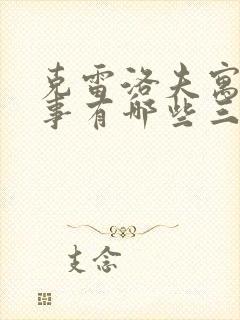 克雷洛夫寓
事有哪些三
支念